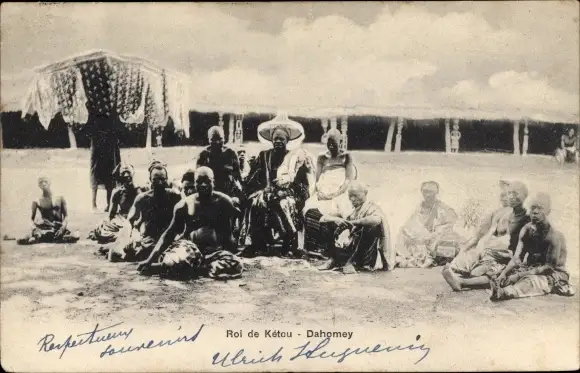 Roi de Kétou - Dahomey
Respectueux
souvenirs
Ulrich Huguenin